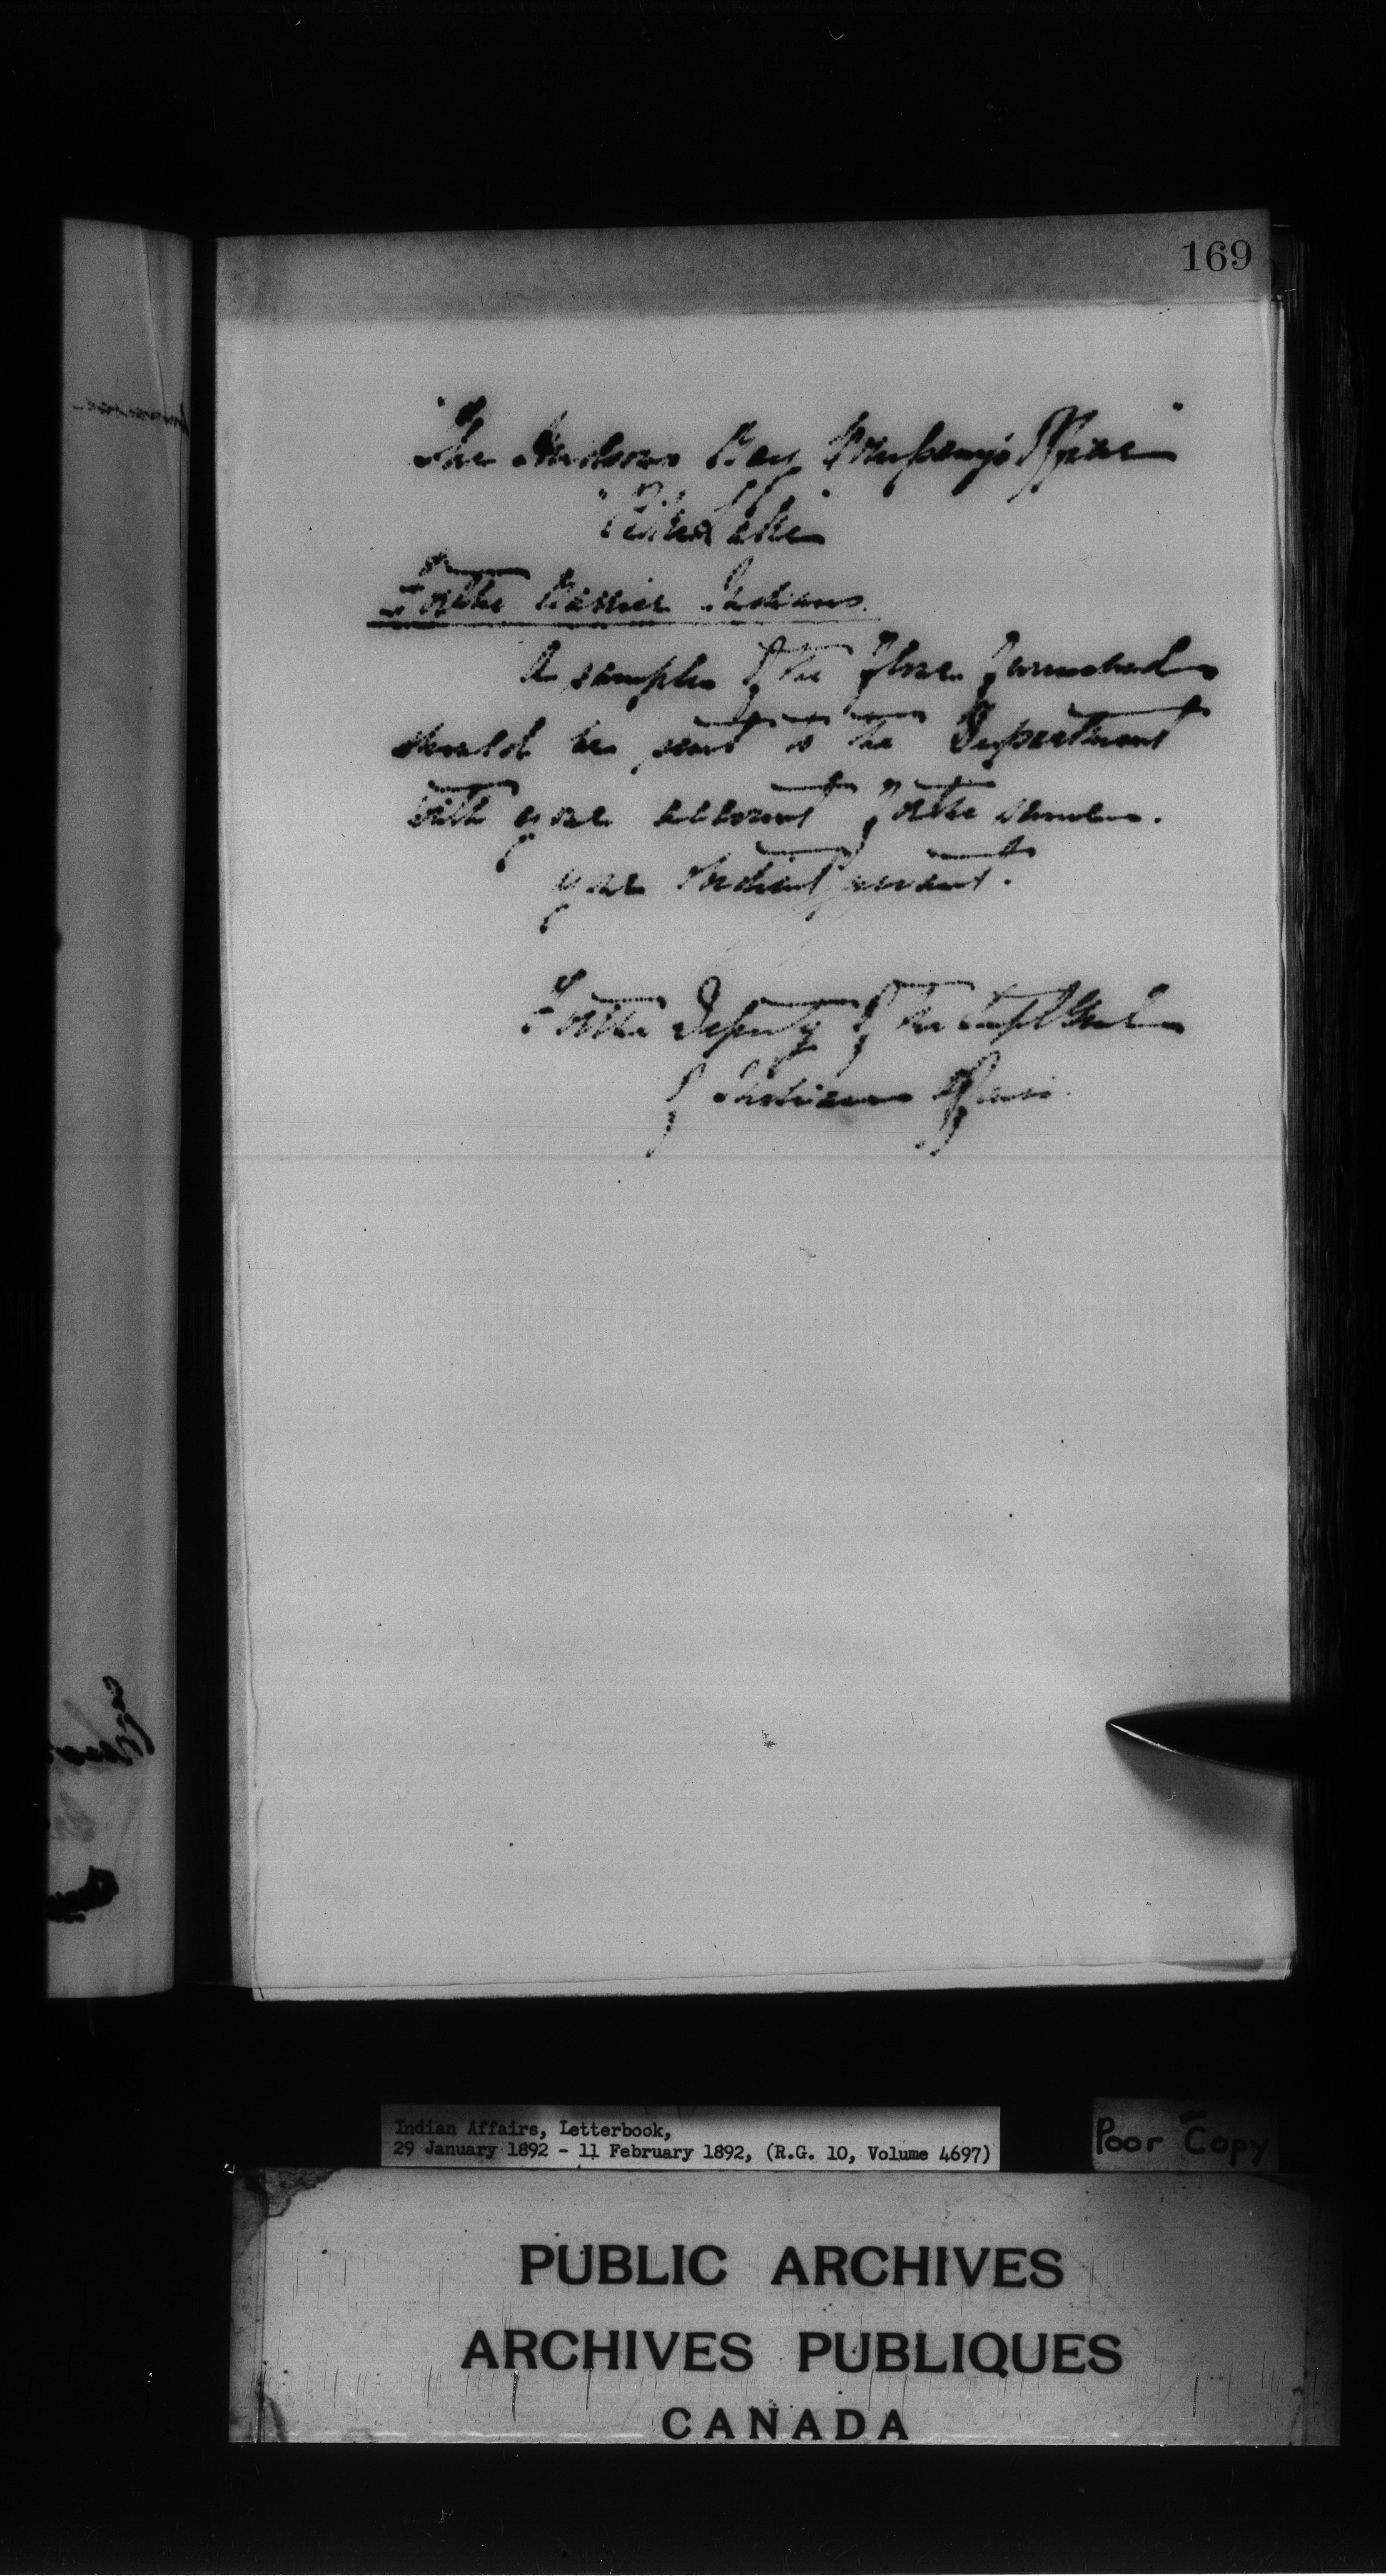 169
"The Hudsons Bay Company's Office"
"
For the Barrier Indians.
A sample of the flour furnished
should be sent to the Department
with your account for the same.
your obedient servant.
For the Deputy of the Supt Genl
of Indian Affairs.
Indian Affairs, Letterbook,
29 January 1892 - 11 February 1892, (R.G. 10, Volume 4697)
Poor Copy
PUBLIC ARCHIVES
ARCHIVES PUBLIQUES
CANADA